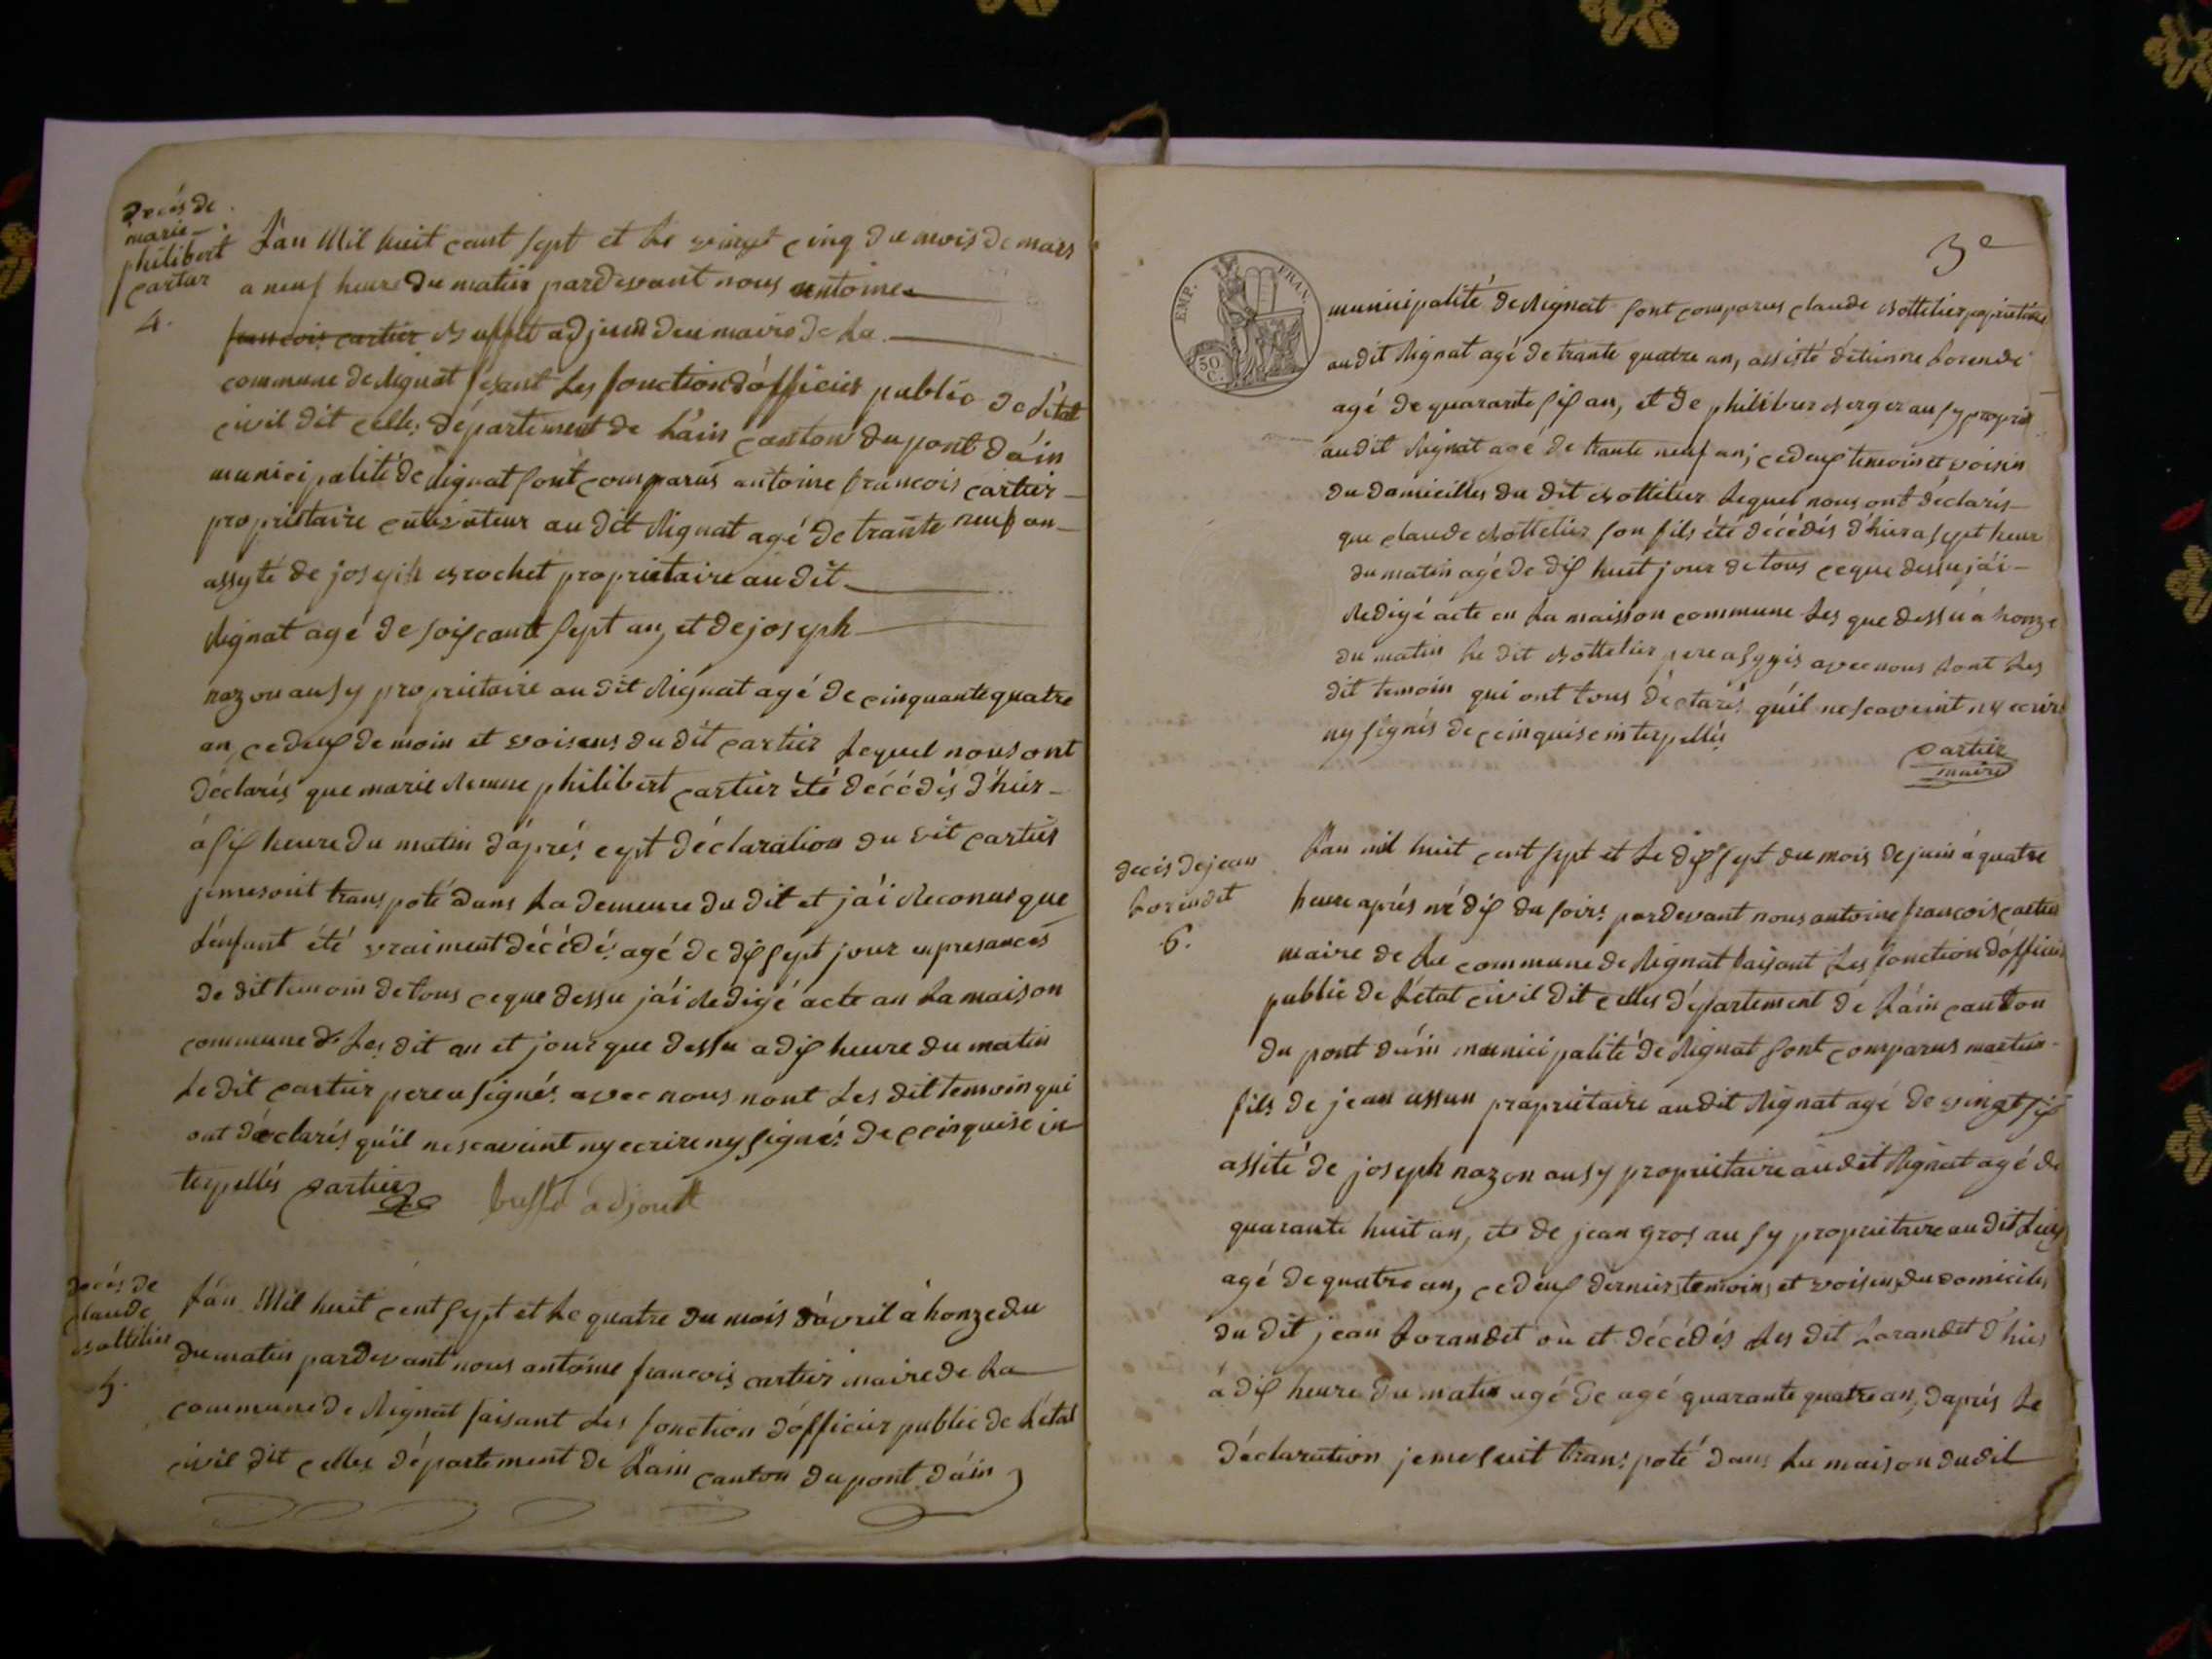 décés de
marie
philibert
cartier
4.
L'an Mil huit cent sept et le vingt cinq du mois de mars
a neuf heure du matin pardevant nous antoine
francois cartier buffet adjoind du maire de la
commune de Rignat fesant les fonction d'officier public de l'état
civil dit celle, département de l'ain canton du pont d'ain
municipalité de Rignat sont comparus antoine francois cartier
propriétaire cultivateur au dit Rignat agé de trante neuf an
assyté de joseph brochet propriétaire au dit
Rignat agé de soiscante sept an, et de joseph
nazon ausy propriétaire au dit Rignat agé de cinquante quatre
an, ce deux de moin et voisens du dit cartier lequel nous ont
déclarés que marie philibert cartier été décédés d'hier
á six heure du matin d'áprés cept déclaration du dit cartier
je me soit transpoté dans la demeure du dit et j'ái Reconus que
l'enfant été vraiment décédé agé de dix sept jour en presances
de dit temoin de tous ce que dessu j'ái Redigé acte an la maison
commune les dit an et jour que dessu a dix heure du matin
le dit cartier pere a signés avec nous nont les dit temoin qui
ont déclarés qu'il ne scaveint ny ecrire ny signés de ce inquise in
terpellés cartier buffet adjoutt
décés de
claude
bottelier
5.
L'án Mil huit cent sept et le quatre du mois d'avril á honze du
du matin pardevant nous antoine francois cartier maire de la
commune de Rignat faisant les fonction d'officier public de l'état
civil dit celles département de l'ain canton du pont d'áin
3e
EMP. FRAN.
50 C.
municipalité de Rignat sont comparus claude bottelier propriétaire
au dit Rignat agé de trante quatre an, assisté d'étienne Lorendi
agé de quarante six an, et de philiber berger ausy propriét
au dit Rignat agé de trante neuf an; ce deux temoin et voisin
du damicilles du dit bottelier lequel nous ont déclarés
que claude bottelier son fils été décédés d'hier a sept heur
du matin agé de dix huit jour de tous ce que dessu j'ái
Redigé acte en la maisson commune les que dessu á honze
du matin le dit bottelier pere a avec nous les
dit temoin qui ont tous déclarés qu'il ne scaveint ny ecrire
ny signés de ce inquise interpellés
cartier
maire
decés de jean
Lorendet
6.
L'an mil huit cent sept et le dix sept du mois de juin á quatre
heure aprés mi dix du soir, pardevant nous antoine francois cartier
maire de la commune de Rignat faisont les fonction d'officier
public de l'état civil dit celles département de l'áin canton
du pont d'áin municipalité de Rignat sont comparus
fils de jean propriétaire au dit Rignat agé de vingt six
assité de joseph nazon ausy propriétaire au dit Rignat agé de
quarante huit an, et de jean gros ausy propriétaire au dit lieu
agé de quatre an, ce deux derniers temoins et voisens du domiciles
du dit jean Lorandet où et décédés les dit Lorandet d'hier
á dix heure du matin agé de agé quarante quatre an, d'aprés la
déclaration je me suit transpoté dans la maison du dit